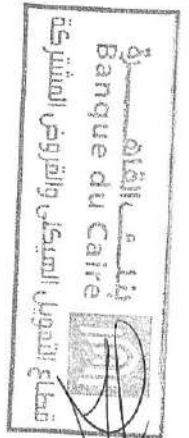 بنك القاهرة
Banque du Caire
قطاع التمويل الهيكلى والقروض المشتركة